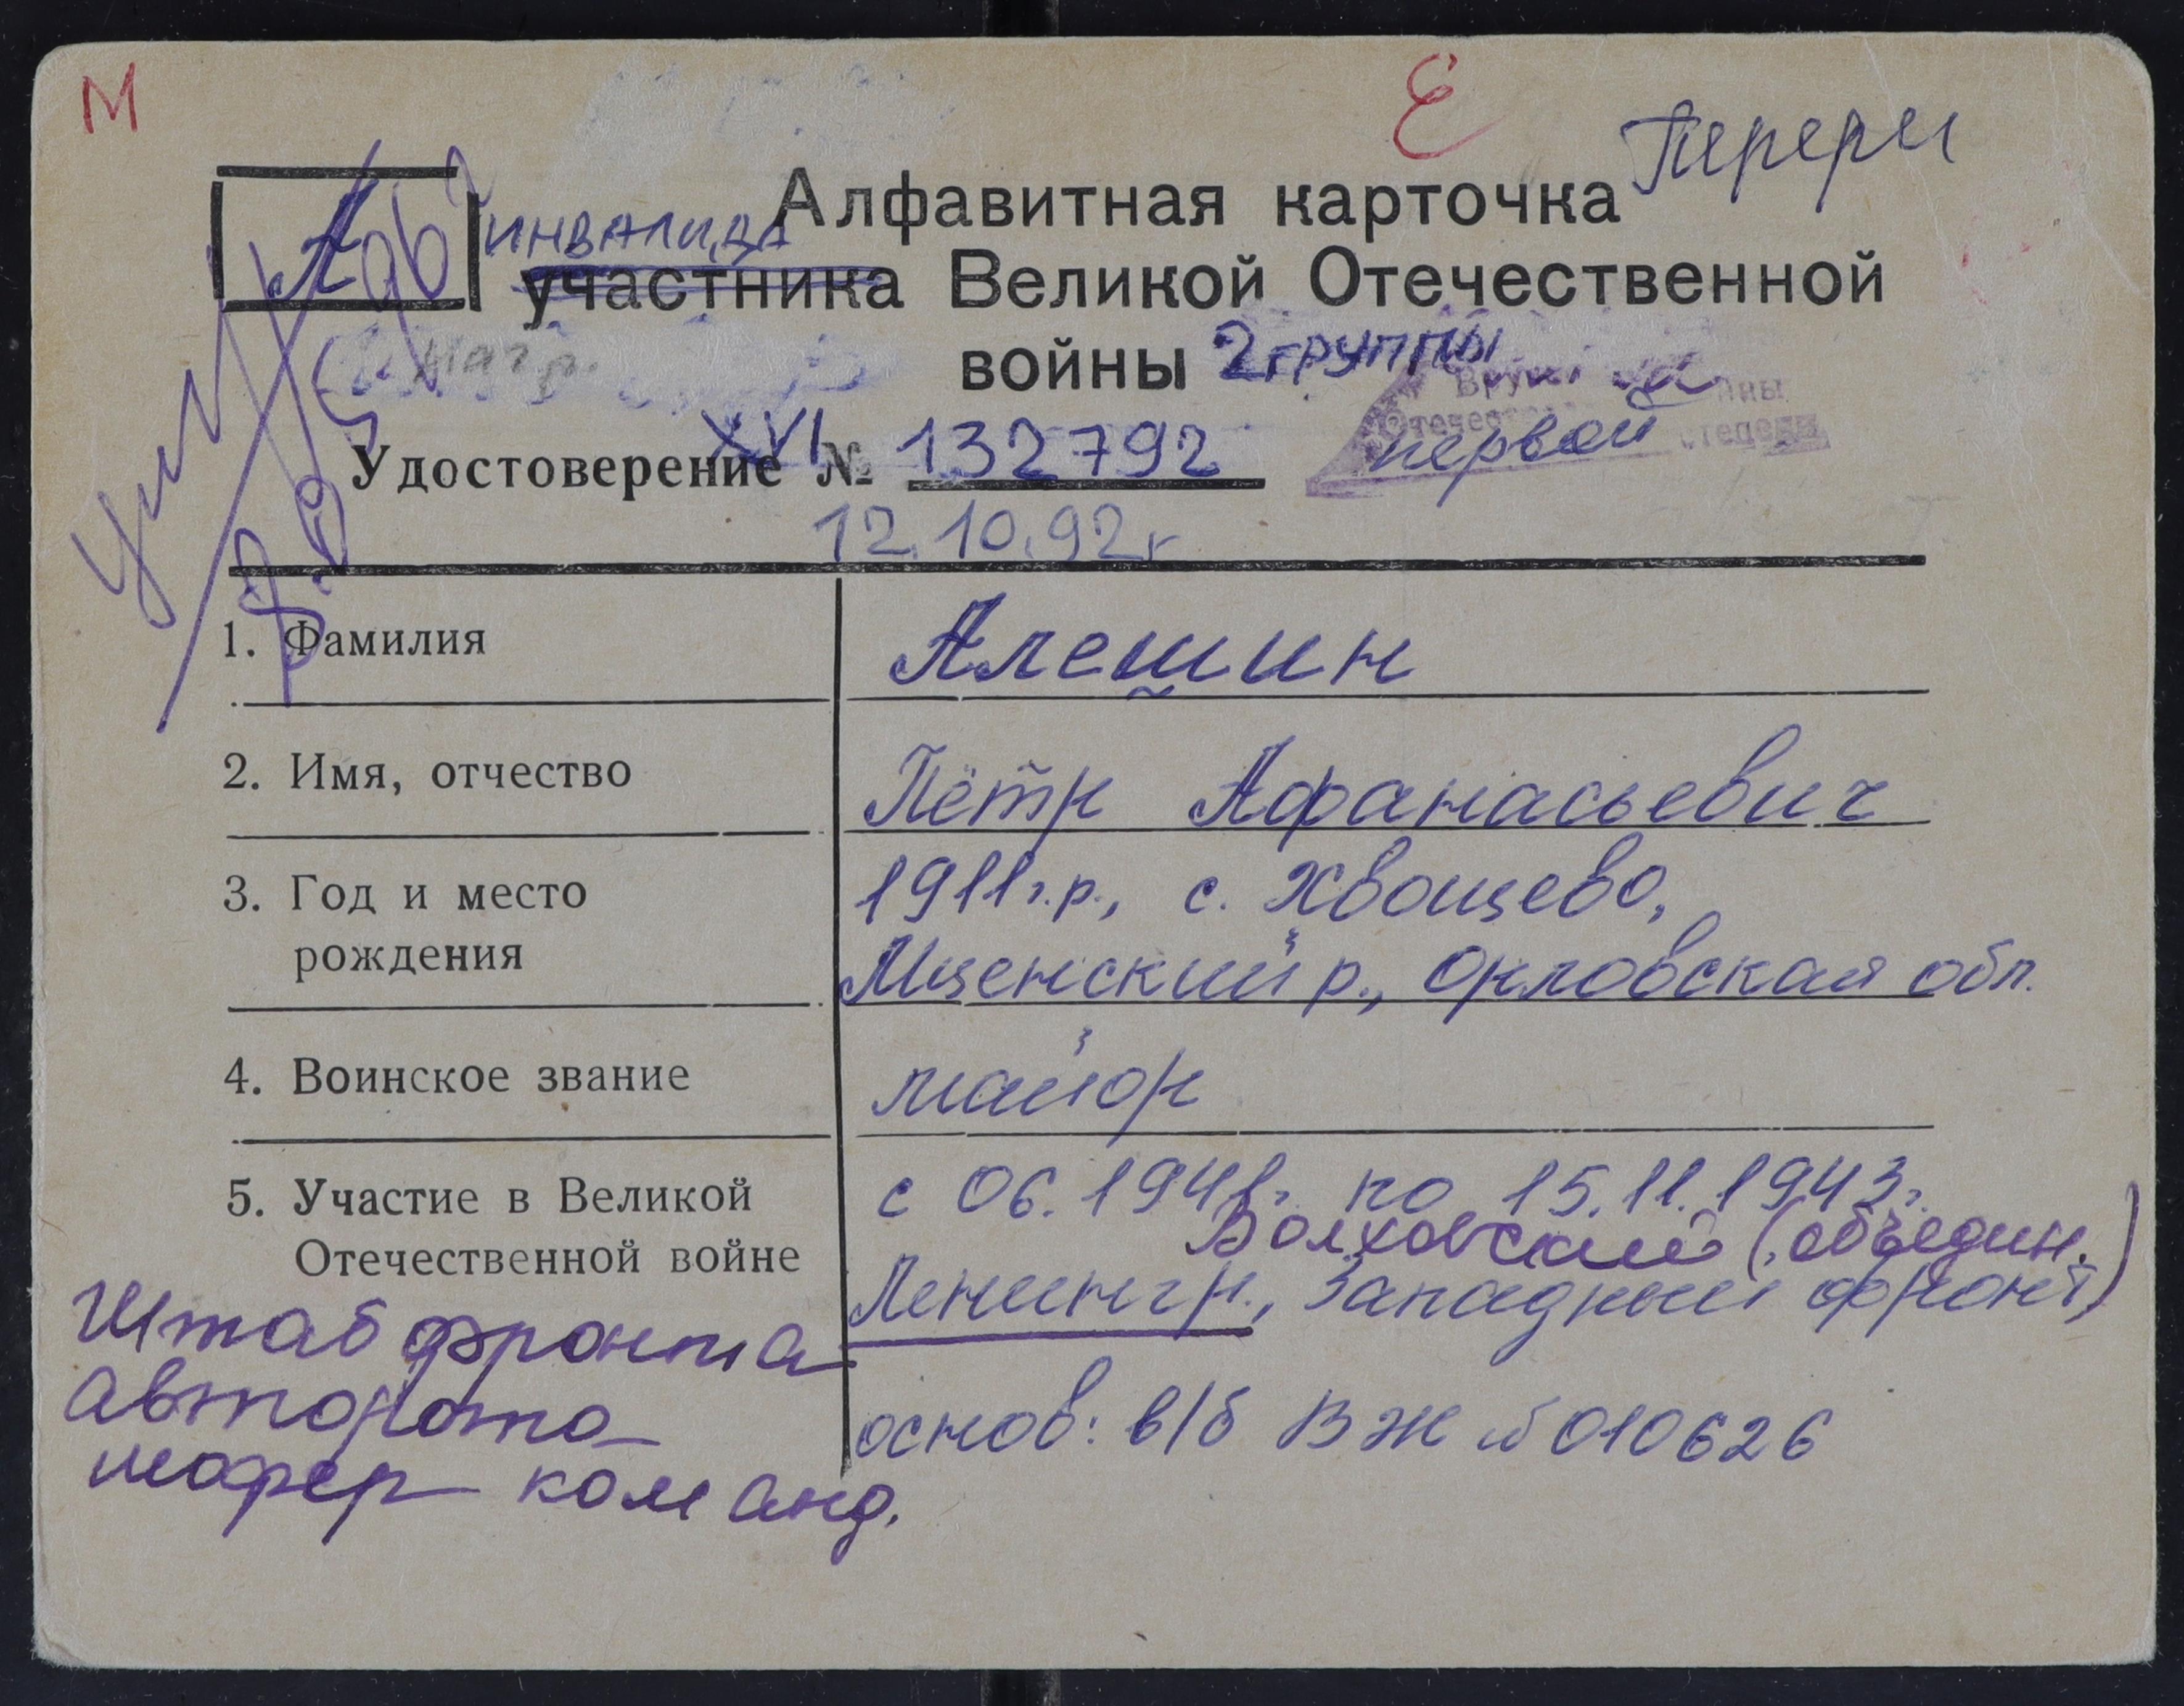 М
Е
Перерег
А
Алфавитная карточка
ИНВАЛИДА
участника Великой Отечественной
войны 2 группы
Нагр.
первой
Удостоверение XVI № 132792
12.10.92г
Ум
1. Фамилия Алешин
2. Имя, отчество Пётр Афанасьевич
3. Год и место 1911г.р., с. Хвощево,
рождения Мценский р., Орловская обл.
4. Воинское звание майор
5. Участие в Великой с 06.1941г. по 15.11.1943г.
Отечественной войне Волховский (объедин.)
Ленингр., Западный фронт
Штаб фронта
авторота основ: в/б ВЖ № 010626
шофер команд.